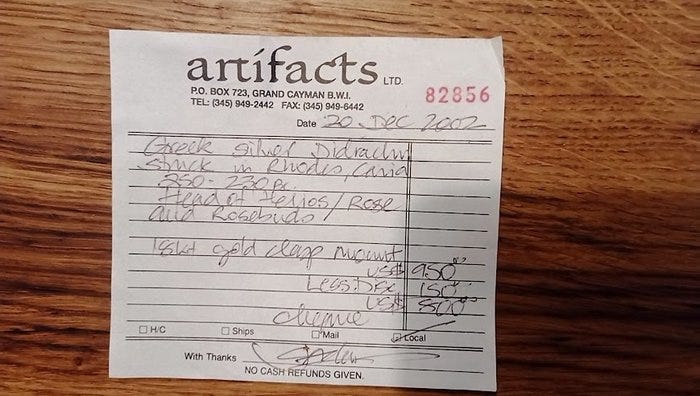 artifacts LTD.
P.O. BOX 723, GRAND CAYMAN B.W.I.
TEL: (345) 949-2442 FAX: (345) 949-6442
82856
Date 20 Dec 2002
Greek silver Didrachm
struck in Rhodes, Caria
250-230 BC.
Head of Helios/Rose
and Rosebuds
18kt gold clasp mount
US$ 950.00
Less: Disc 150.00
US$ 800.00
cheque
H/C Ships Mail Local
With Thanks
NO CASH REFUNDS GIVEN.